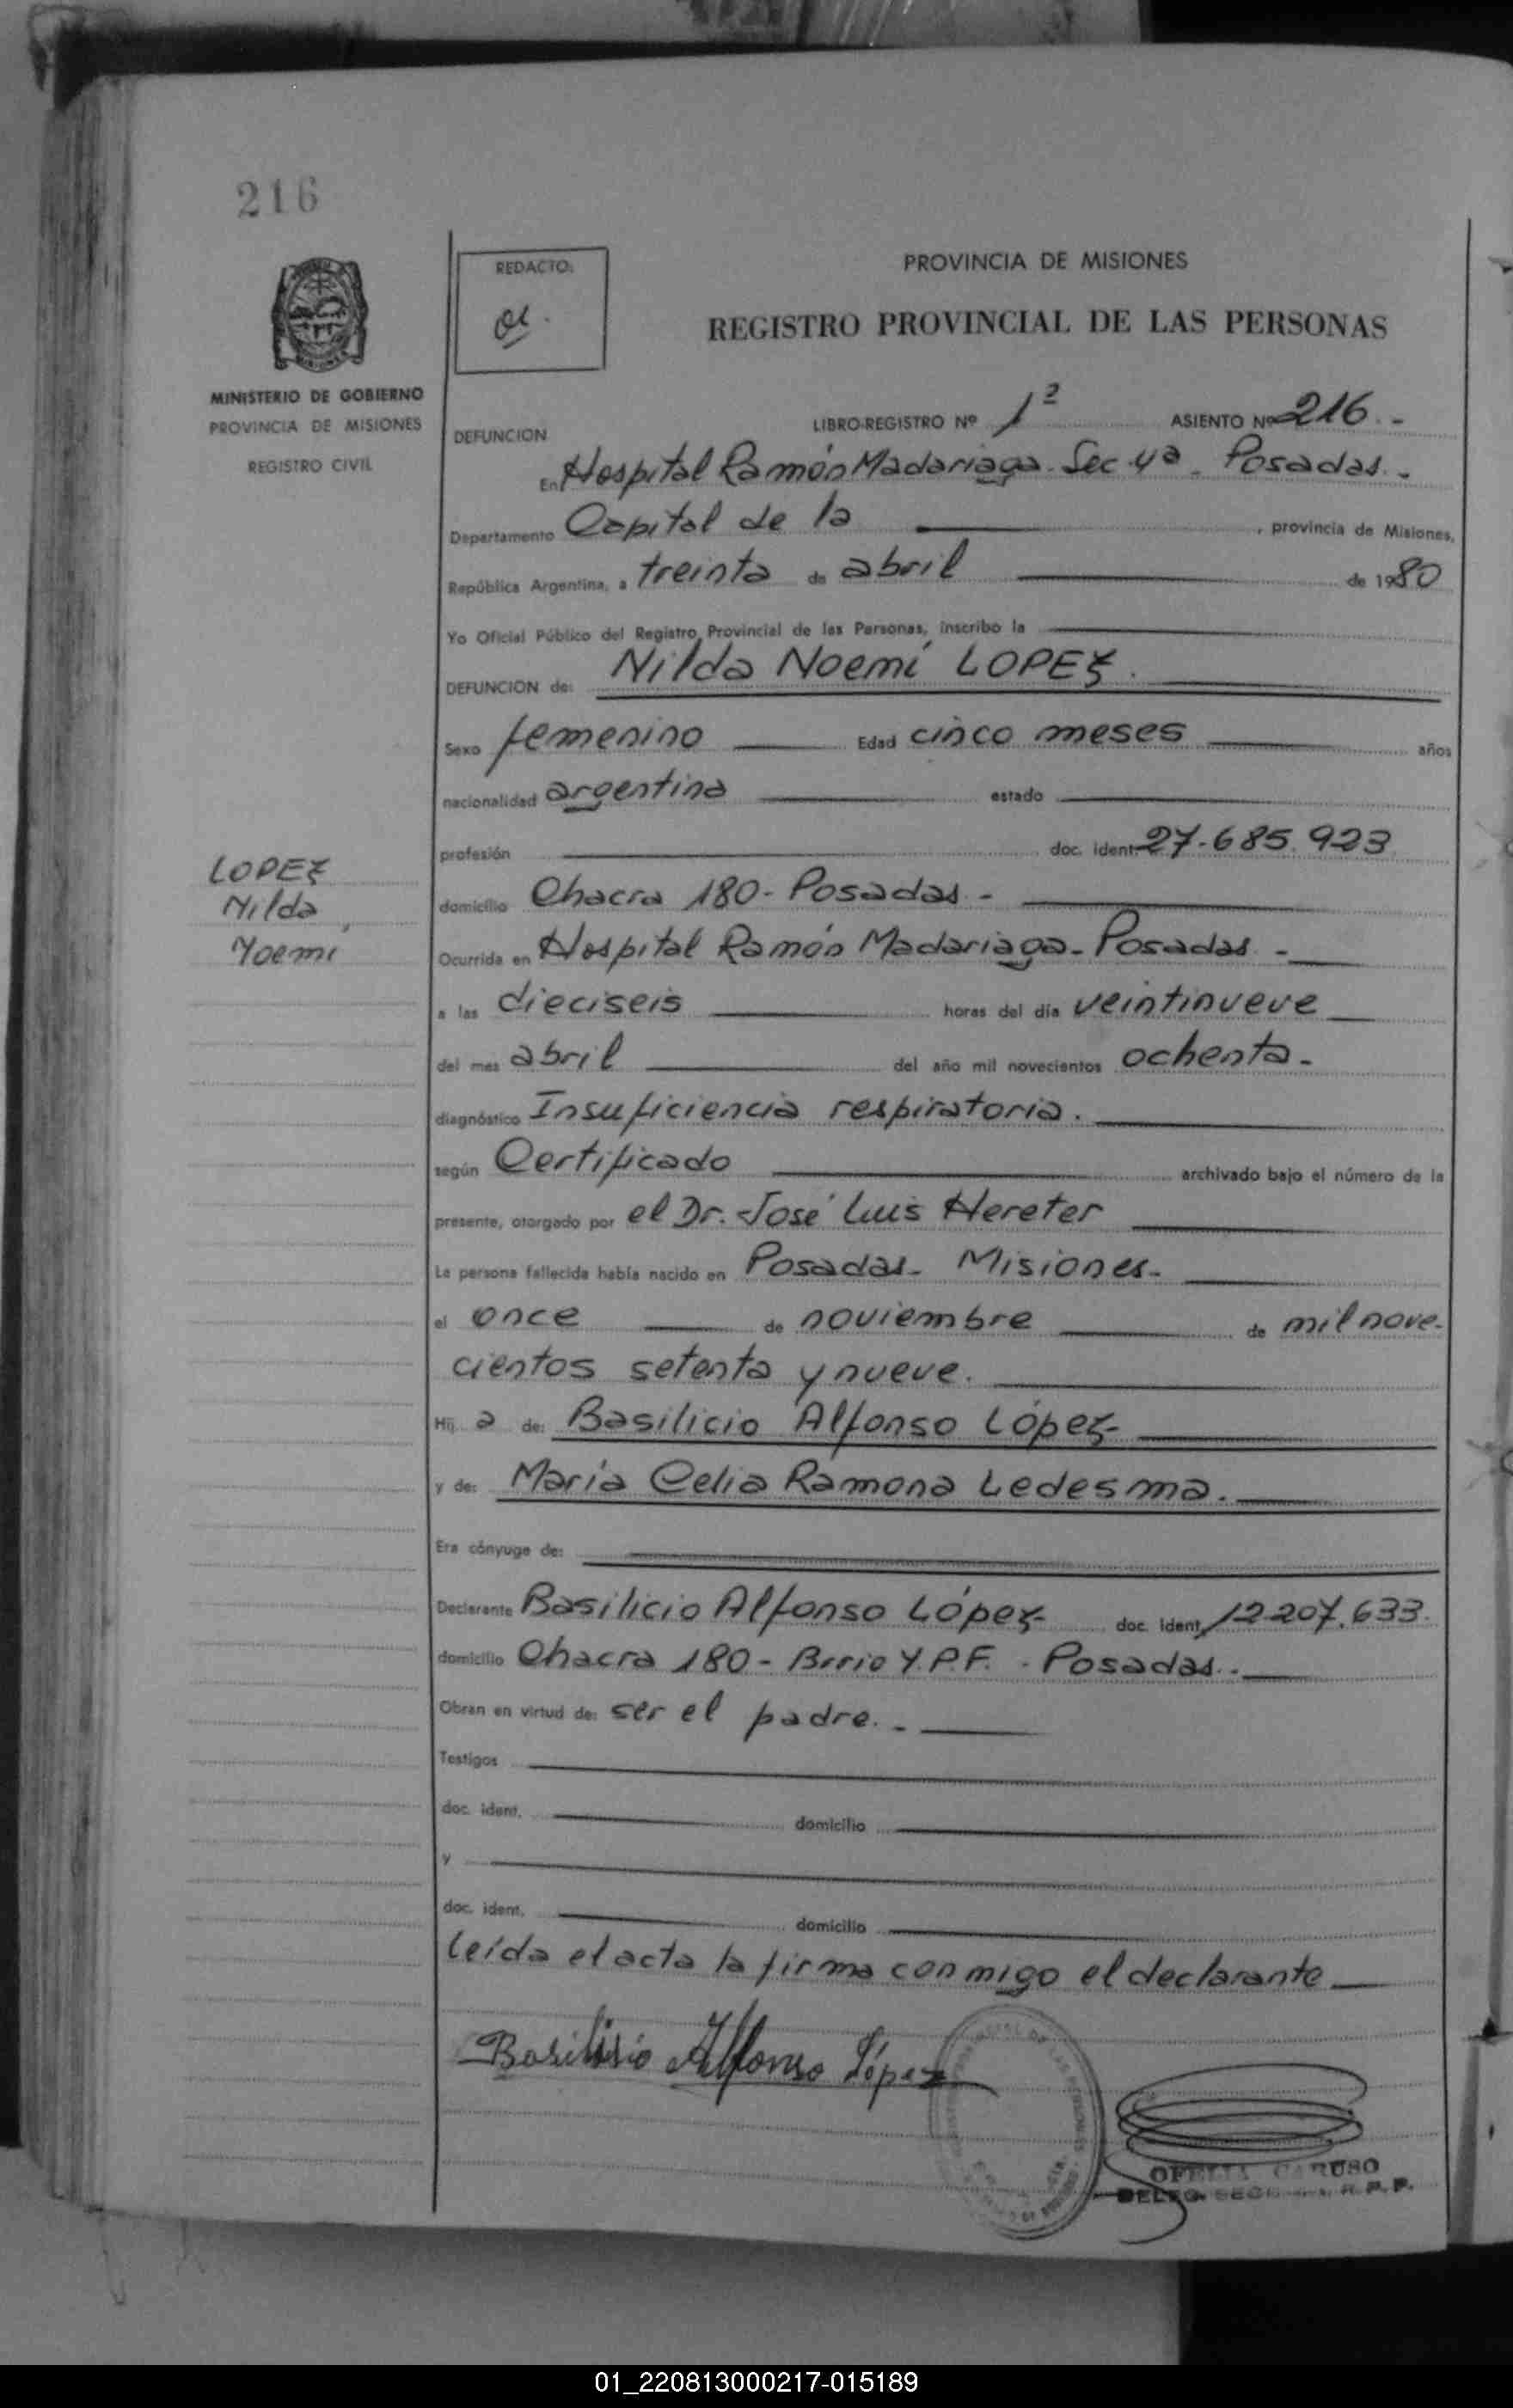 216
REDACTO:
PROVINCIA DE MISIONES
REGISTRO PROVINCIAL DE LAS PERSONAS
MINISTERIO DE GOBIERNO
PROVINCIA DE MISIONES
REGISTRO CIVIL
DEFUNCION LIBRO-REGISTRO Nº 1ª ASIENTO Nº 216.-
En Hospital Ramón Madariaga. Sec 4ª - Posadas.-
Departamento Capital de la , provincia de Misiones,
República Argentina, a treinta de abril de 1980
Yo Oficial Público del Registro Provincial de las Personas, inscribo la
DEFUNCION de: Nilda Noemí LOPEZ.
Sexo femenino Edad cinco meses años
nacionalidad argentina estado
profesión doc. ident. 27.685.923
LOPEZ
Nilda
Noemí
domicilio Chacra 180- Posadas.-
Ocurrida en Hospital Ramón Madariaga- Posadas -
a las dieciseis horas del día veintinueve
del mes abril del año mil novecientos ochenta-
diagnóstico Insuficiencia respiratoria.
según Certificado archivado bajo el número de la
presente, otorgado por el Dr. José Luis Hereter
La persona fallecida había nacido en Posadas- Misiones-
el once de noviembre de mil nove-
cientos setenta y nueve.
Hij a de: Basilicio Alfonso López-
y de: María Celia Ramona Ledesma.
Era cónyuge de:
Declarante Basilicio Alfonso López- doc. Ident. 12.207.633.
domicilio Chacra 180 - Brrio Y.P.F. - Posadas.-
Obran en virtud de: ser el padre.-
Testigos
doc. ident. domicilio
y
doc. ident. domicilio
leída el acta la firma conmigo el declarante
Basilisio Alfonso López
OFELIA CARUSO
R.P.P.
01_220813000217-015189